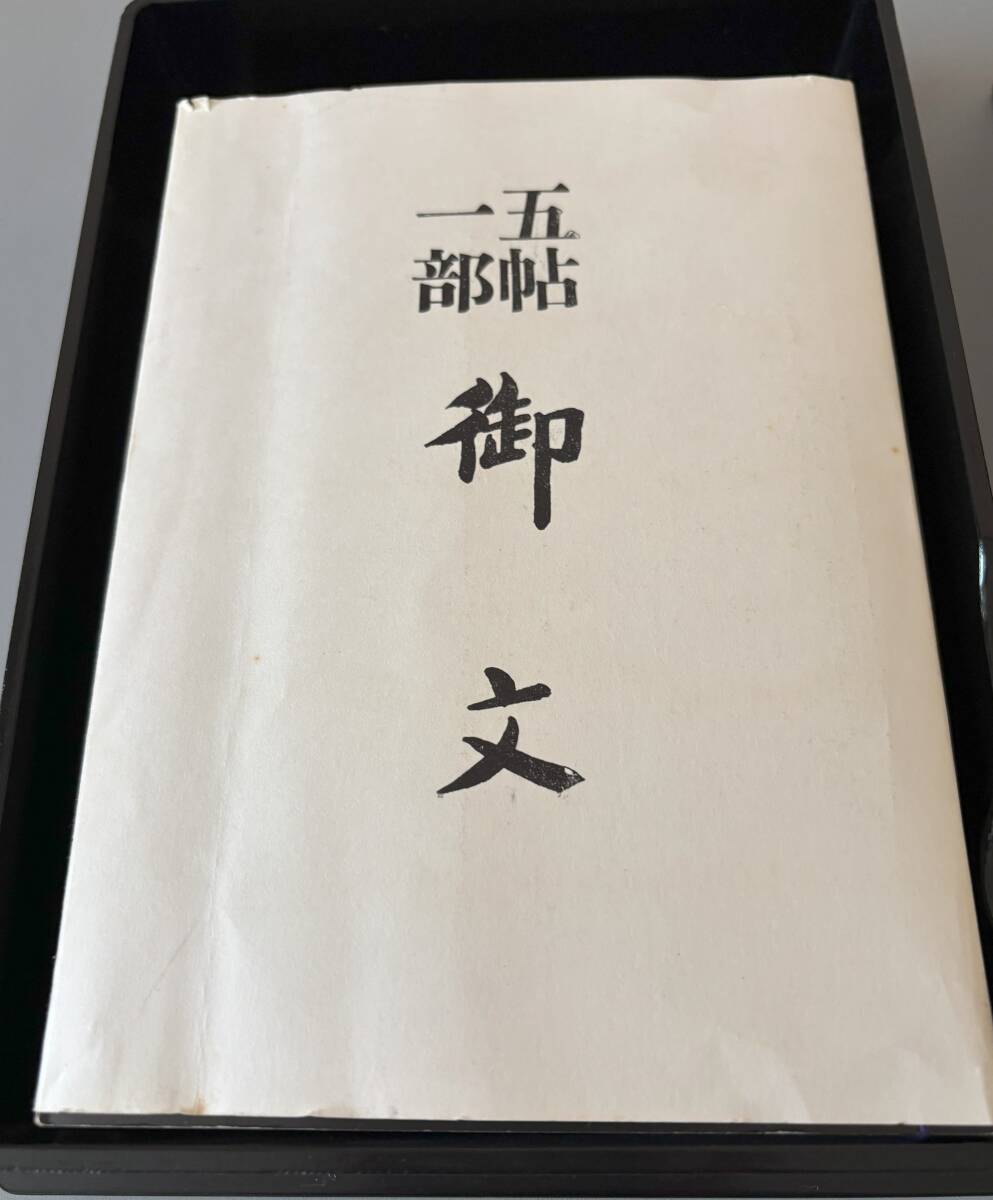 五帖
一部
御文